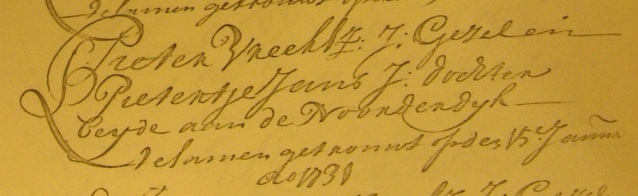 te samen getrouwt op den
Pieter Vreeksz: J: Gezel ein
Pietertje Jans J: dochter
beyde aan de Noorderdyk
te samen getrouwt op den 15e Janua
ao 1731
J: Gezel